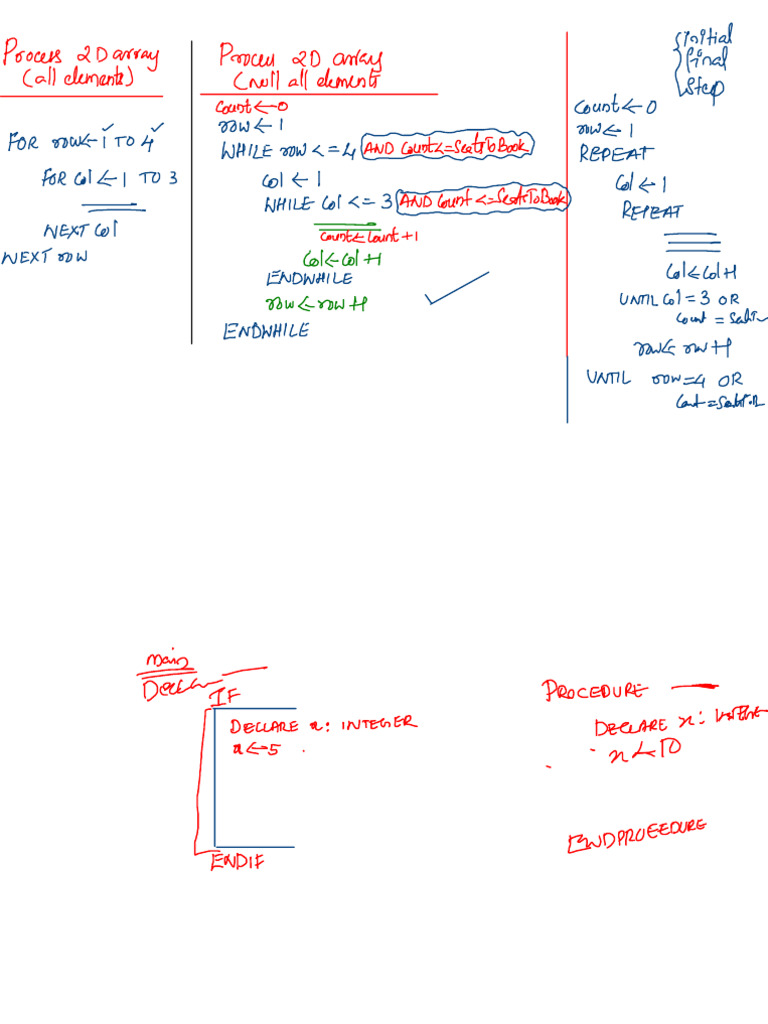 Process 2D array
(all elements)
FOR row ← 1 TO 4
FOR Col ← 1 TO 3
NEXT Col
NEXT row
Process 2D array
(null all elements
Count ← 0
row ← 1
WHILE row <= 4 AND Count <= SeatsToBook
Col ← 1
WHILE Col <= 3 AND Count <= SeatsToBook
Count ← Count + 1
Col ← Col + 1
ENDWHILE
row ← row + 1
ENDWHILE
initial
final
Step
Count ← 0
row ← 1
REPEAT
Col ← 1
REPEAT
Col ← Col + 1
UNTIL Col = 3 OR
Count =
row ← row + 1
UNTIL row = 4 OR
main
IF
DECLARE x : INTEGER
x ← 5
ENDIF
PROCEDURE
DECLARE x :
x ← 10
ENDPROCEDURE